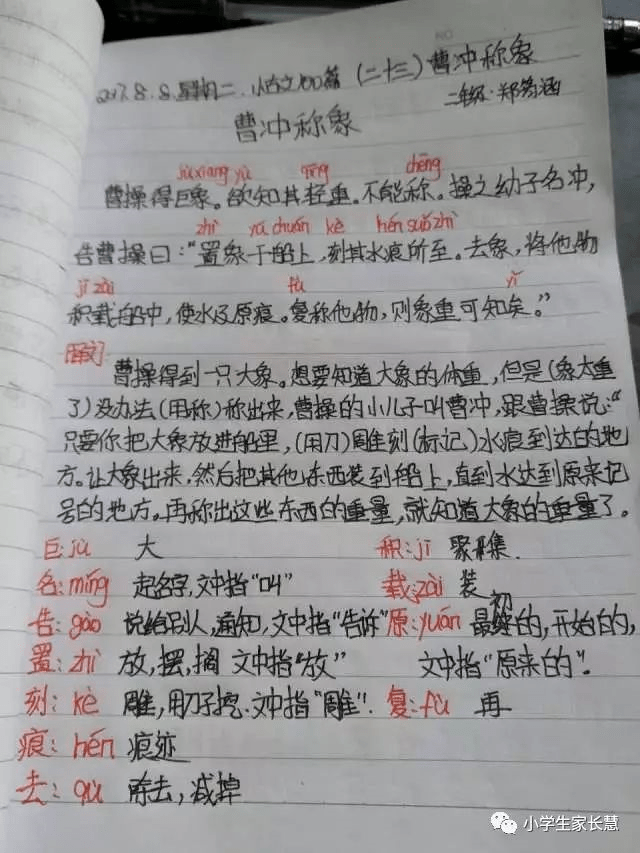 2017.8.8.星期二.小古文100篇 (二十三)曹冲称象
二年级·郑筠涵
曹冲称象
jù xiàng yù qīng chēng
曹操得巨象。欲知其轻重。不能称。操之幼子名冲,
zhì yú chuán kè hén suǒ zhì
告曹操曰:“置象于船上,刻其水痕所至。去象,将他物
jī zài fù yǐ
积载船中,使水及原痕。复称他物,则象重可知矣。”
译文:
曹操得到一只大象。想要知道大象的体重,但是(象太重
了)没办法(用称)称出来,曹操的小儿子叫曹冲,跟曹操说:“
只要你把大象放进船里,(用刀)雕刻(标记)水痕到达的地
方。让大象出来,然后把其他东西装到船上,直到水达到原来记
号的地方。再称出这些东西的重量,就知道大象的重量了。
巨:jù 大 积:jī 聚集.
名:míng 起名字,文中指“叫” 载:zài 装
告:gào 说给别人,通知,文中指“告诉” 原:yuán 最初的,开始的,
置:zhì 放,摆,搁 文中指“放” 文中指“原来的”.
刻:kè 雕,用刀子挖.文中指“雕”. 复:fù 再
痕:hén 痕迹
去:qù 除去,减掉
小学生家长慧